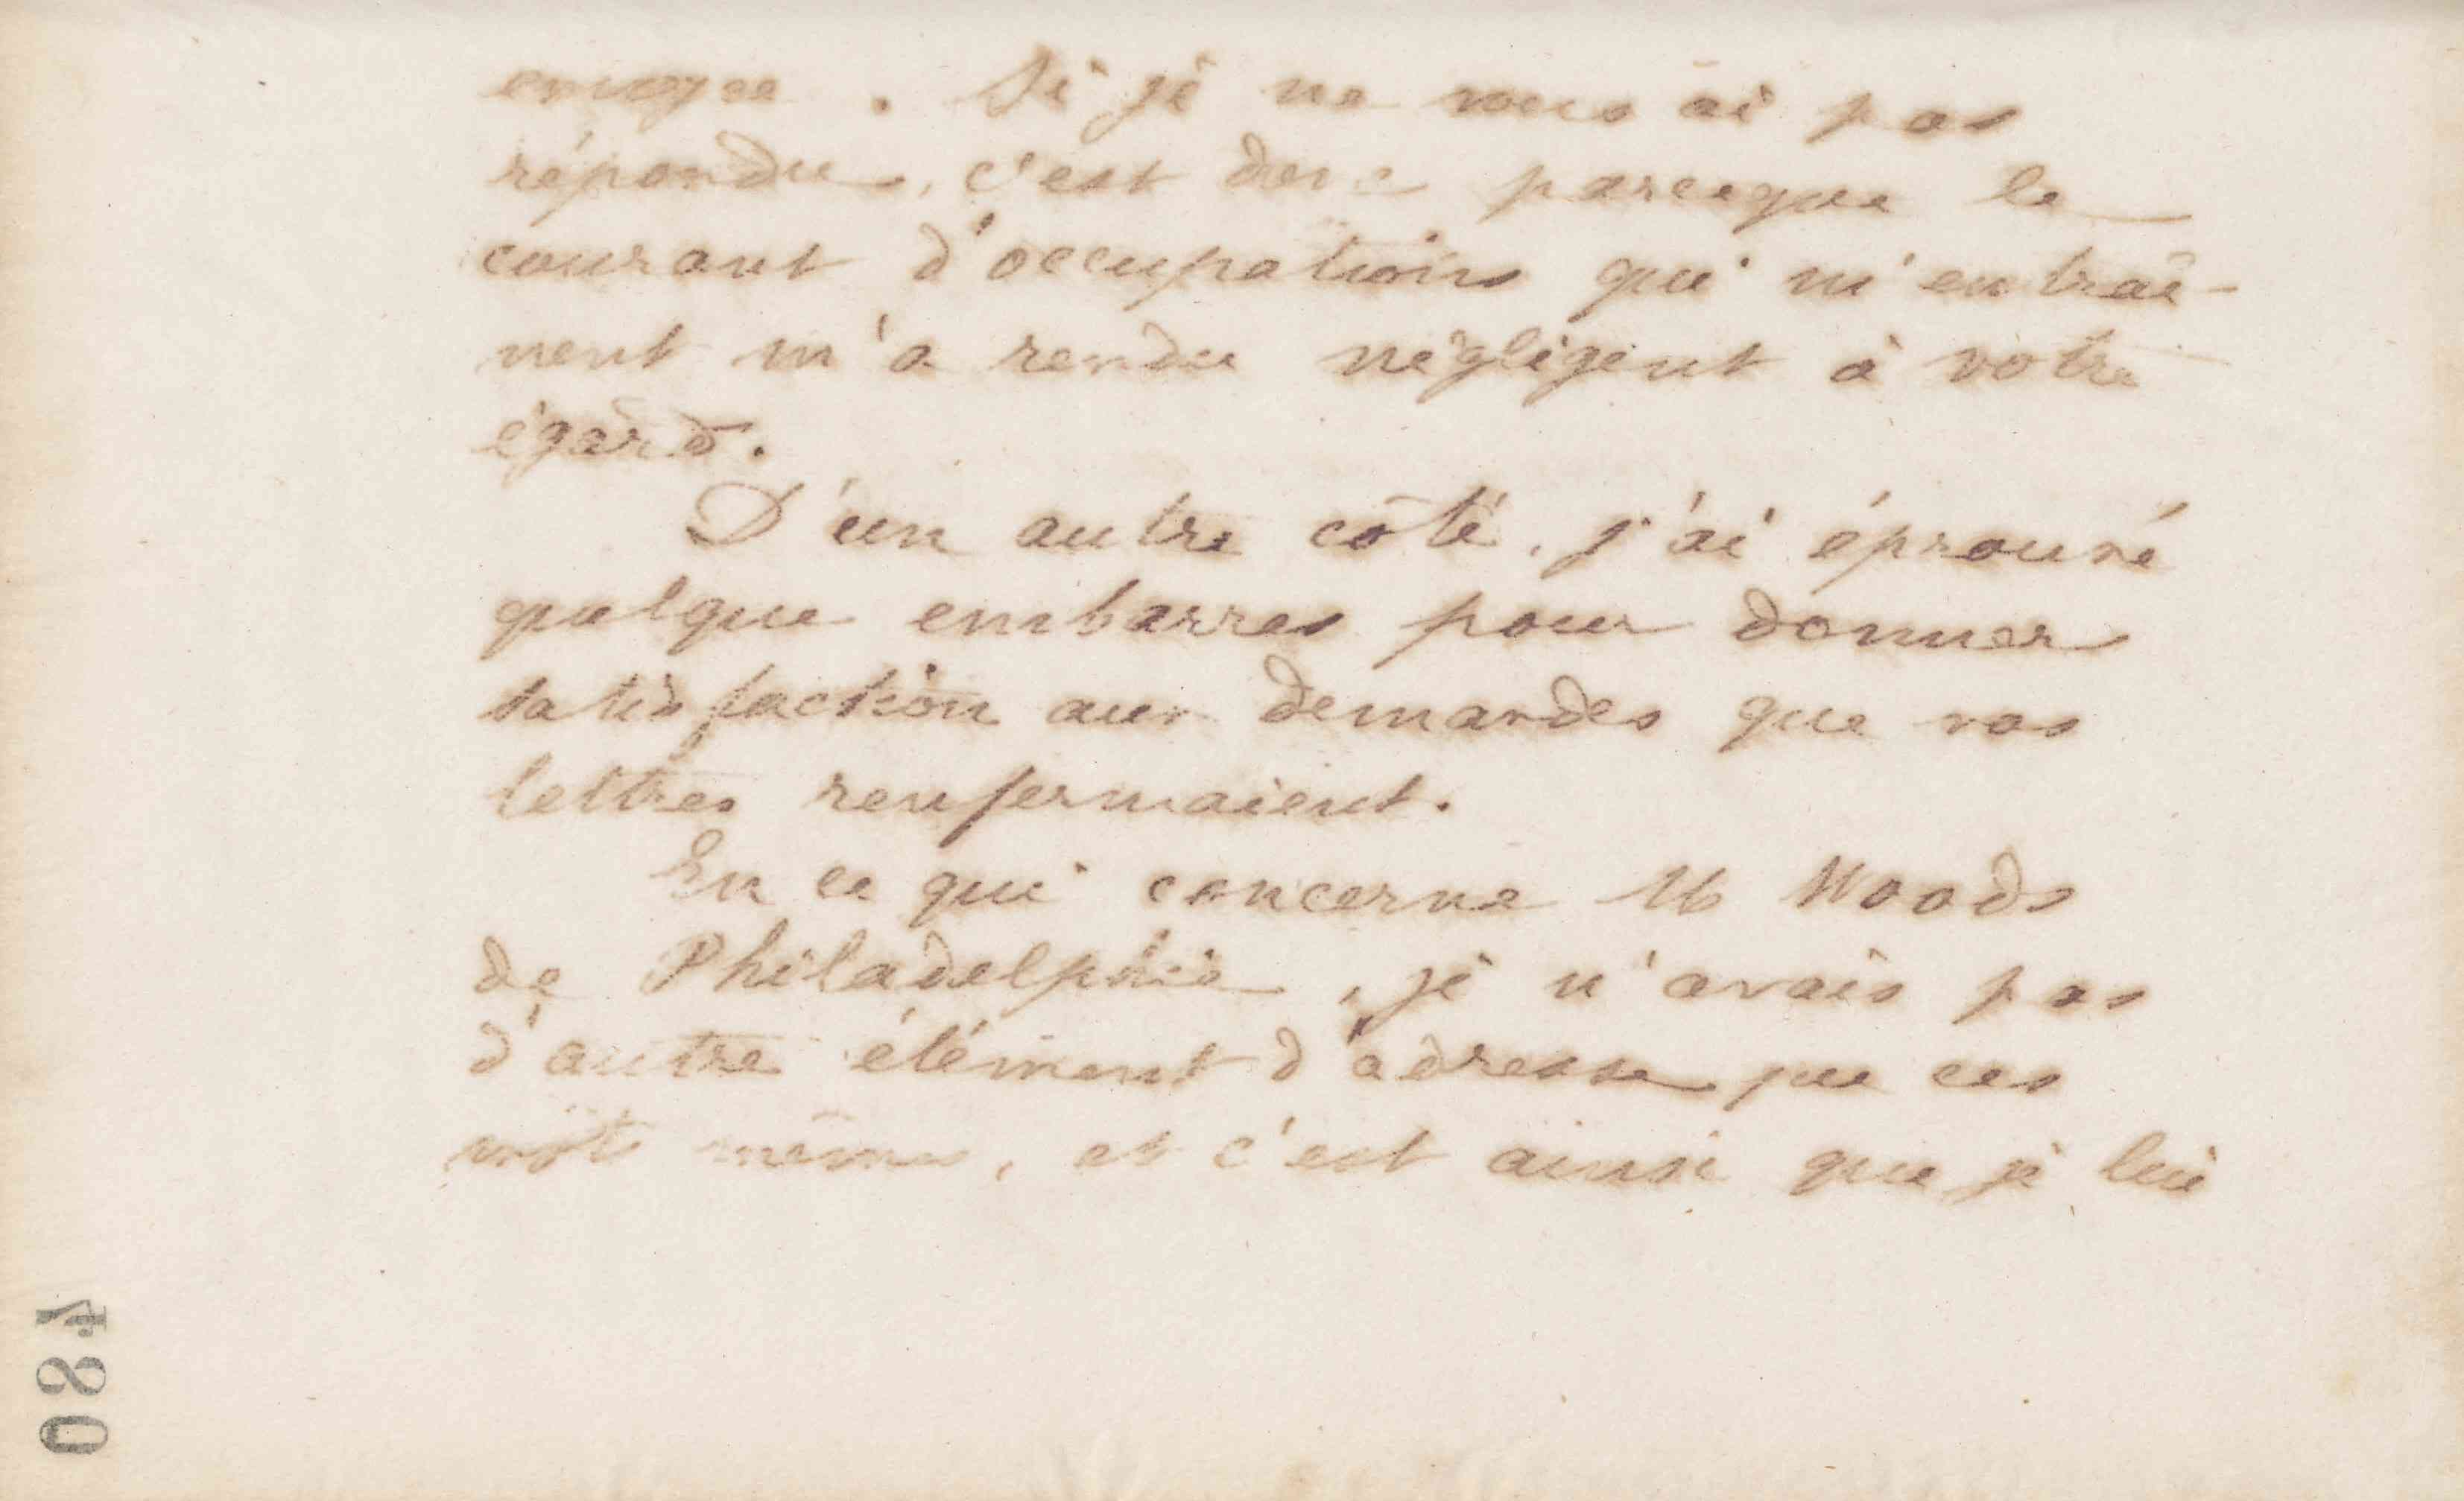 envoyée. Si je ne vous ai pas
répondu, c'est donc parceque le
courant d'occupations qui m'entraî-
nent m'a rendu négligent à votre
égard.
D'un autre côté, j'ai éprouvé
quelque embarras pour donner
satisfaction aux demandes que vos
lettres renfermaient.
En ce qui concerne M Woods
de Philadelphie, je n'avais pas
d'autre élément d'adresse que ces
mots mêmes, et c'est ainsi que je lui
084